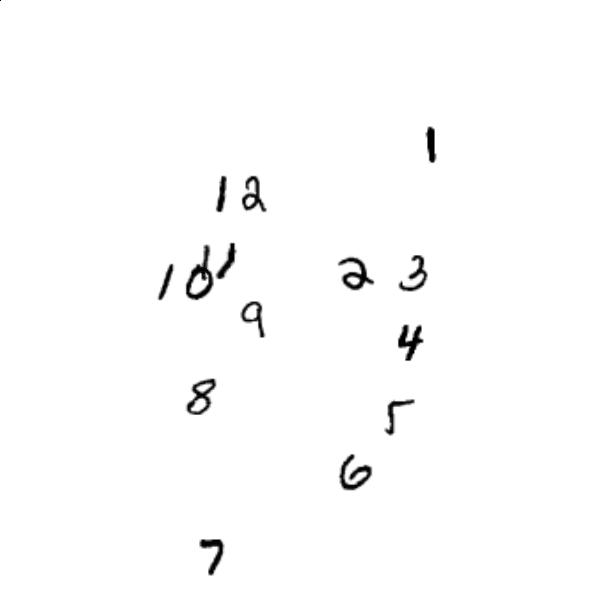 1
12
11
10 2 3
9
4
8
5
6
7